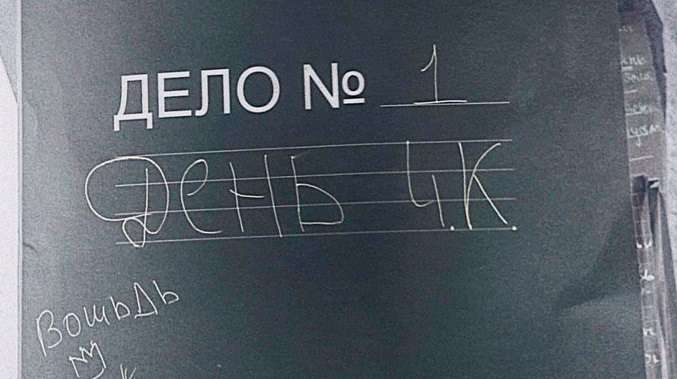 ДЕЛО № 1
ДеНЬ Ч.К.
ВОШЬДЬ